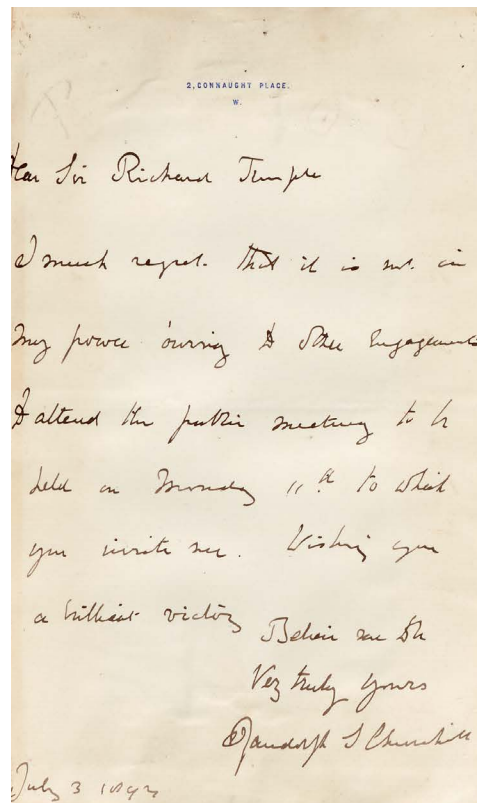 2, CONNAUGHT PLACE.
W.
Dear Sir Richard Temple
I much regret that it is not in
my power owing to other Engagements
to attend the public meeting to be
held on Monday 11th to which
you invite me. Wishing you
a brilliant victory
Believe me to be
Very truly yours
Randolph S Churchill
July 3 189